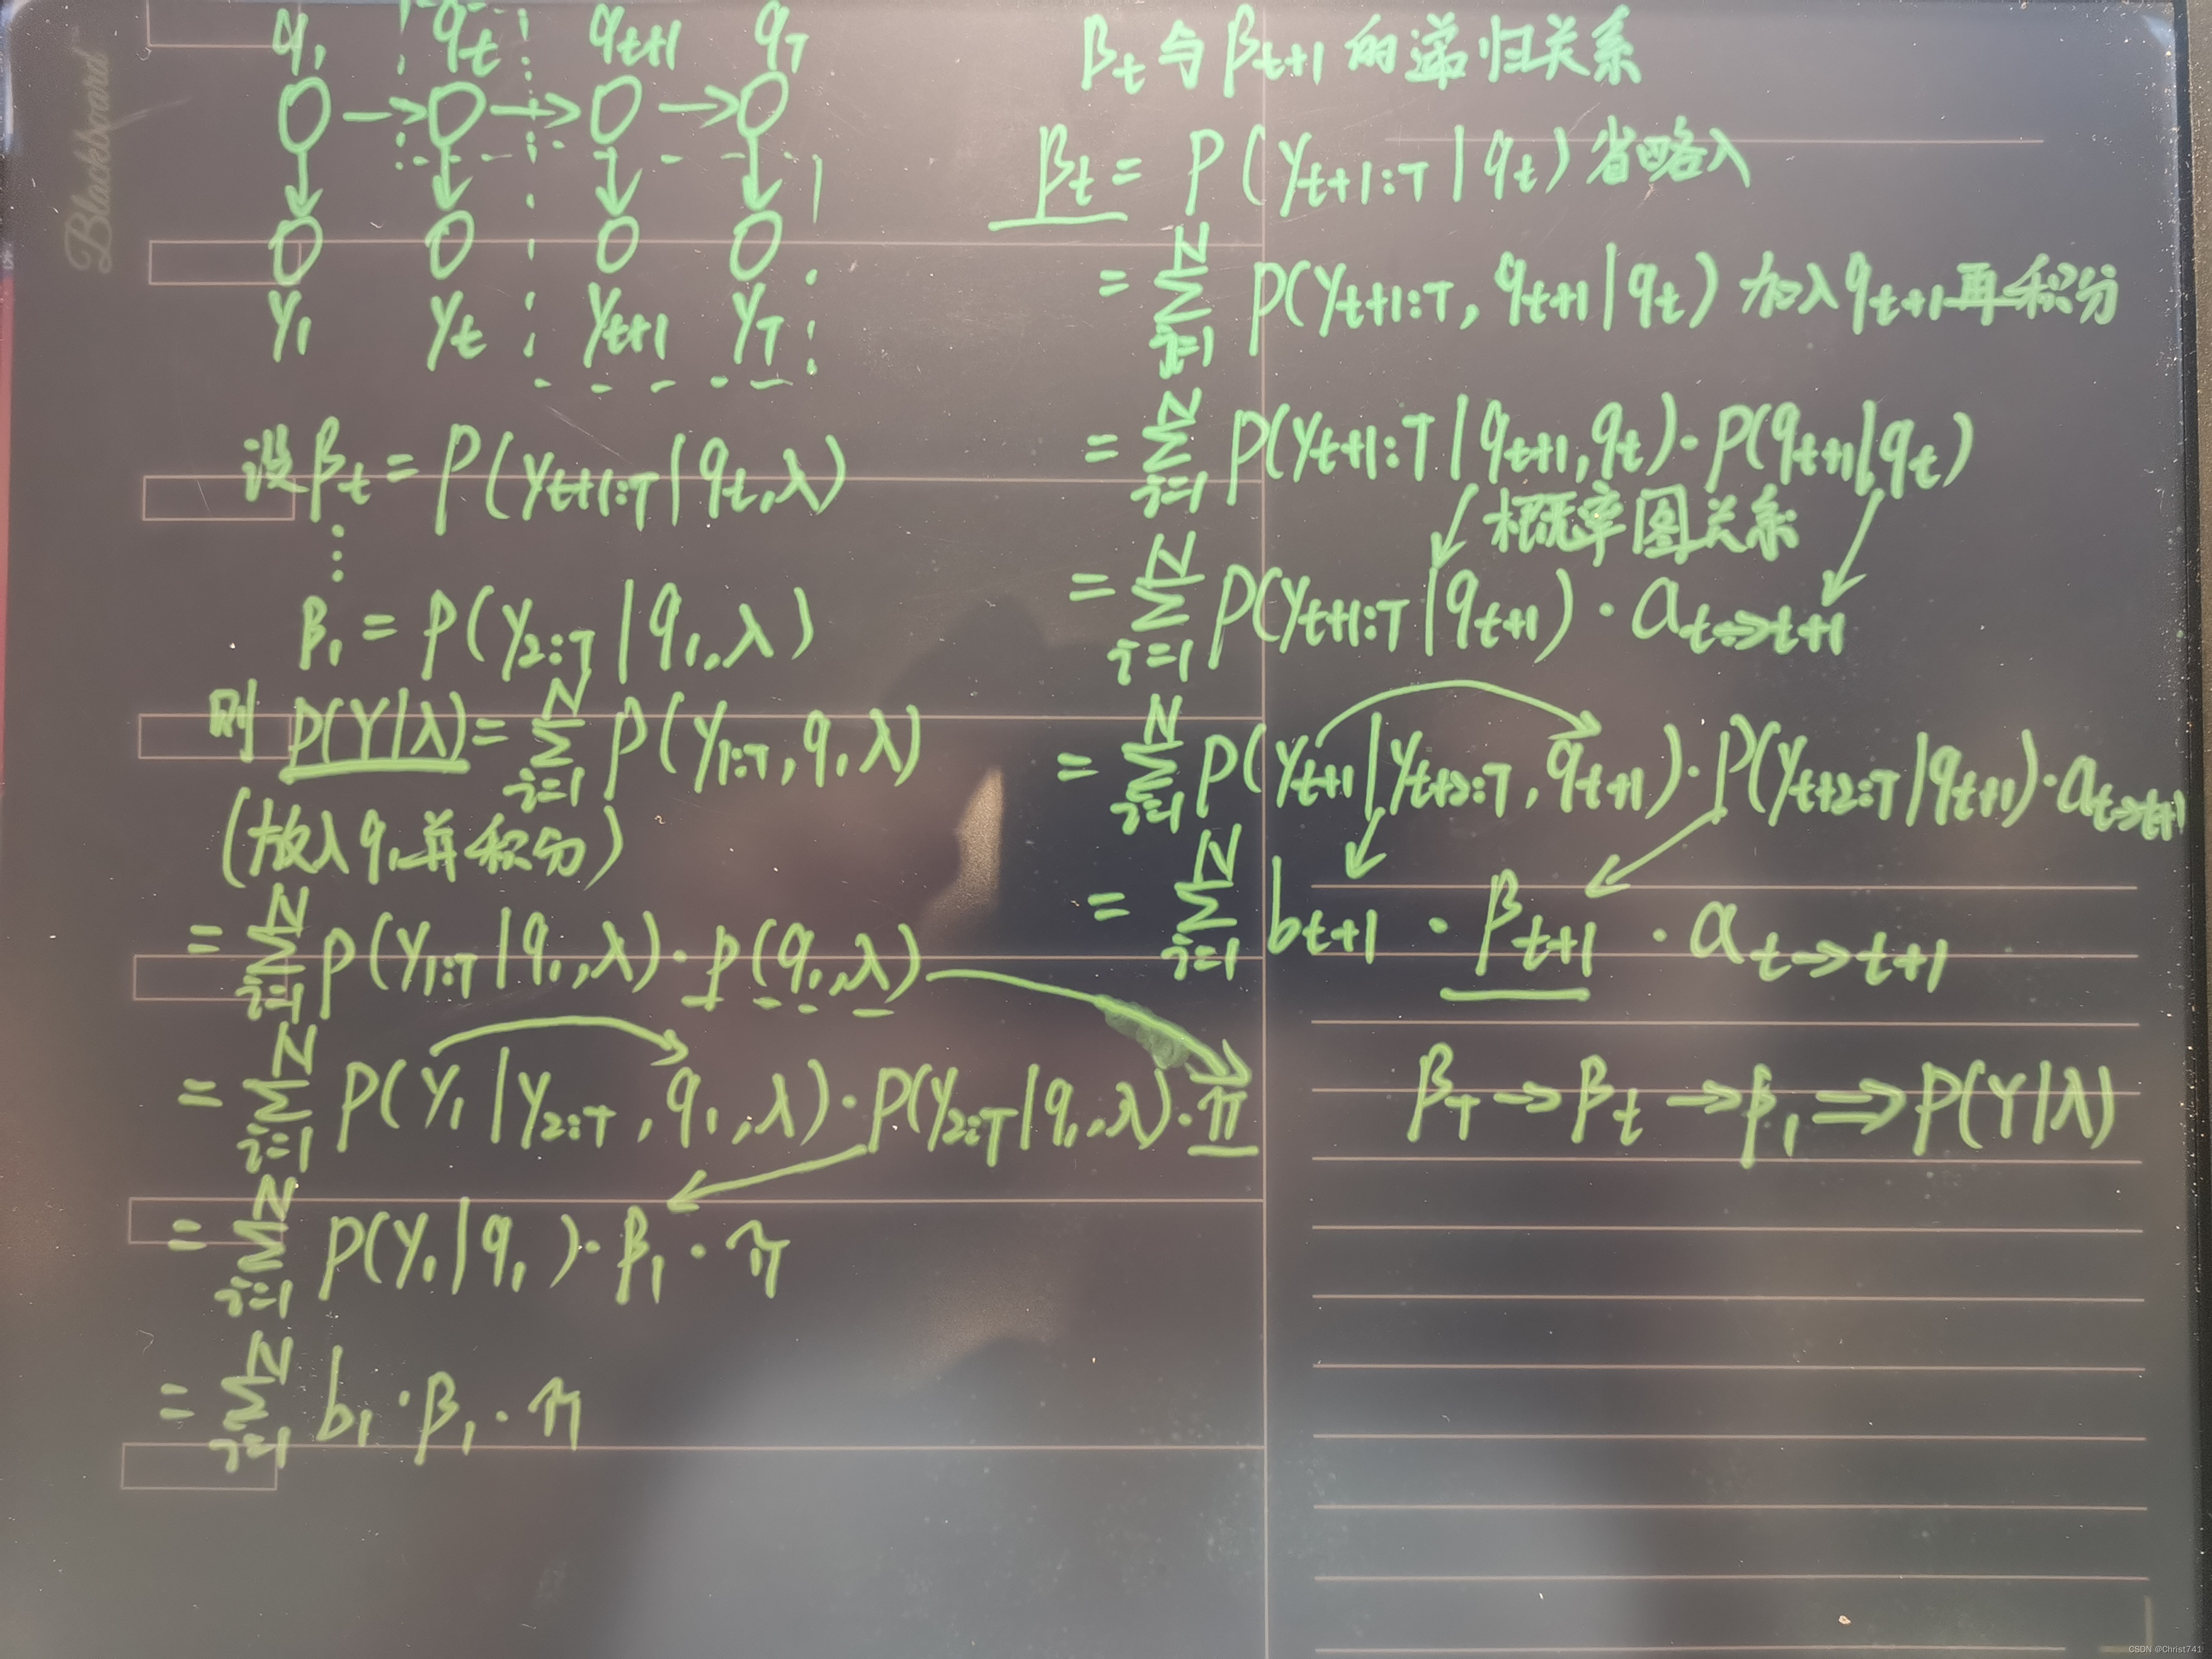 Blackboard
q₁ q_t q_{t+1} q_T
y₁ y_t y_{t+1} y_T
设 β_t = P(y_{t+1:T} | q_t, λ)
⋮
β₁ = P(y_{2:T} | q₁, λ)
则 P(Y|λ) = Σ_{i=1}^N P(y_{1:T}, q₁, λ)
(放入q₁并积分)
= Σ_{i=1}^N P(y_{1:T} | q₁, λ) · P(q₁, λ)
= Σ_{i=1}^N P(y₁ | y_{2:T}, q₁, λ) · P(y_{2:T} | q₁, λ) · π
= Σ_{i=1}^N P(y₁ | q₁) · β₁ · π
= Σ_{i=1}^N b₁ · β₁ · π
β_t 与 β_{t+1} 的递归关系
β_t = P(y_{t+1:T} | q_t) 省略λ
= Σ_{i=1}^N P(y_{t+1:T}, q_{t+1} | q_t) 加入q_{t+1}再积分
= Σ_{i=1}^N P(y_{t+1:T} | q_{t+1}, q_t) · P(q_{t+1} | q_t)
概率图关系
= Σ_{i=1}^N P(y_{t+1:T} | q_{t+1}) · a_{t→t+1}
= Σ_{i=1}^N P(y_{t+1} | y_{t+2:T}, q_{t+1}) · P(y_{t+2:T} | q_{t+1}) · a_{t→t+1}
= Σ_{i=1}^N b_{t+1} · β_{t+1} · a_{t→t+1}
β_T → β_t → β₁ ⇒ P(Y|λ)
CSDN @Christ741